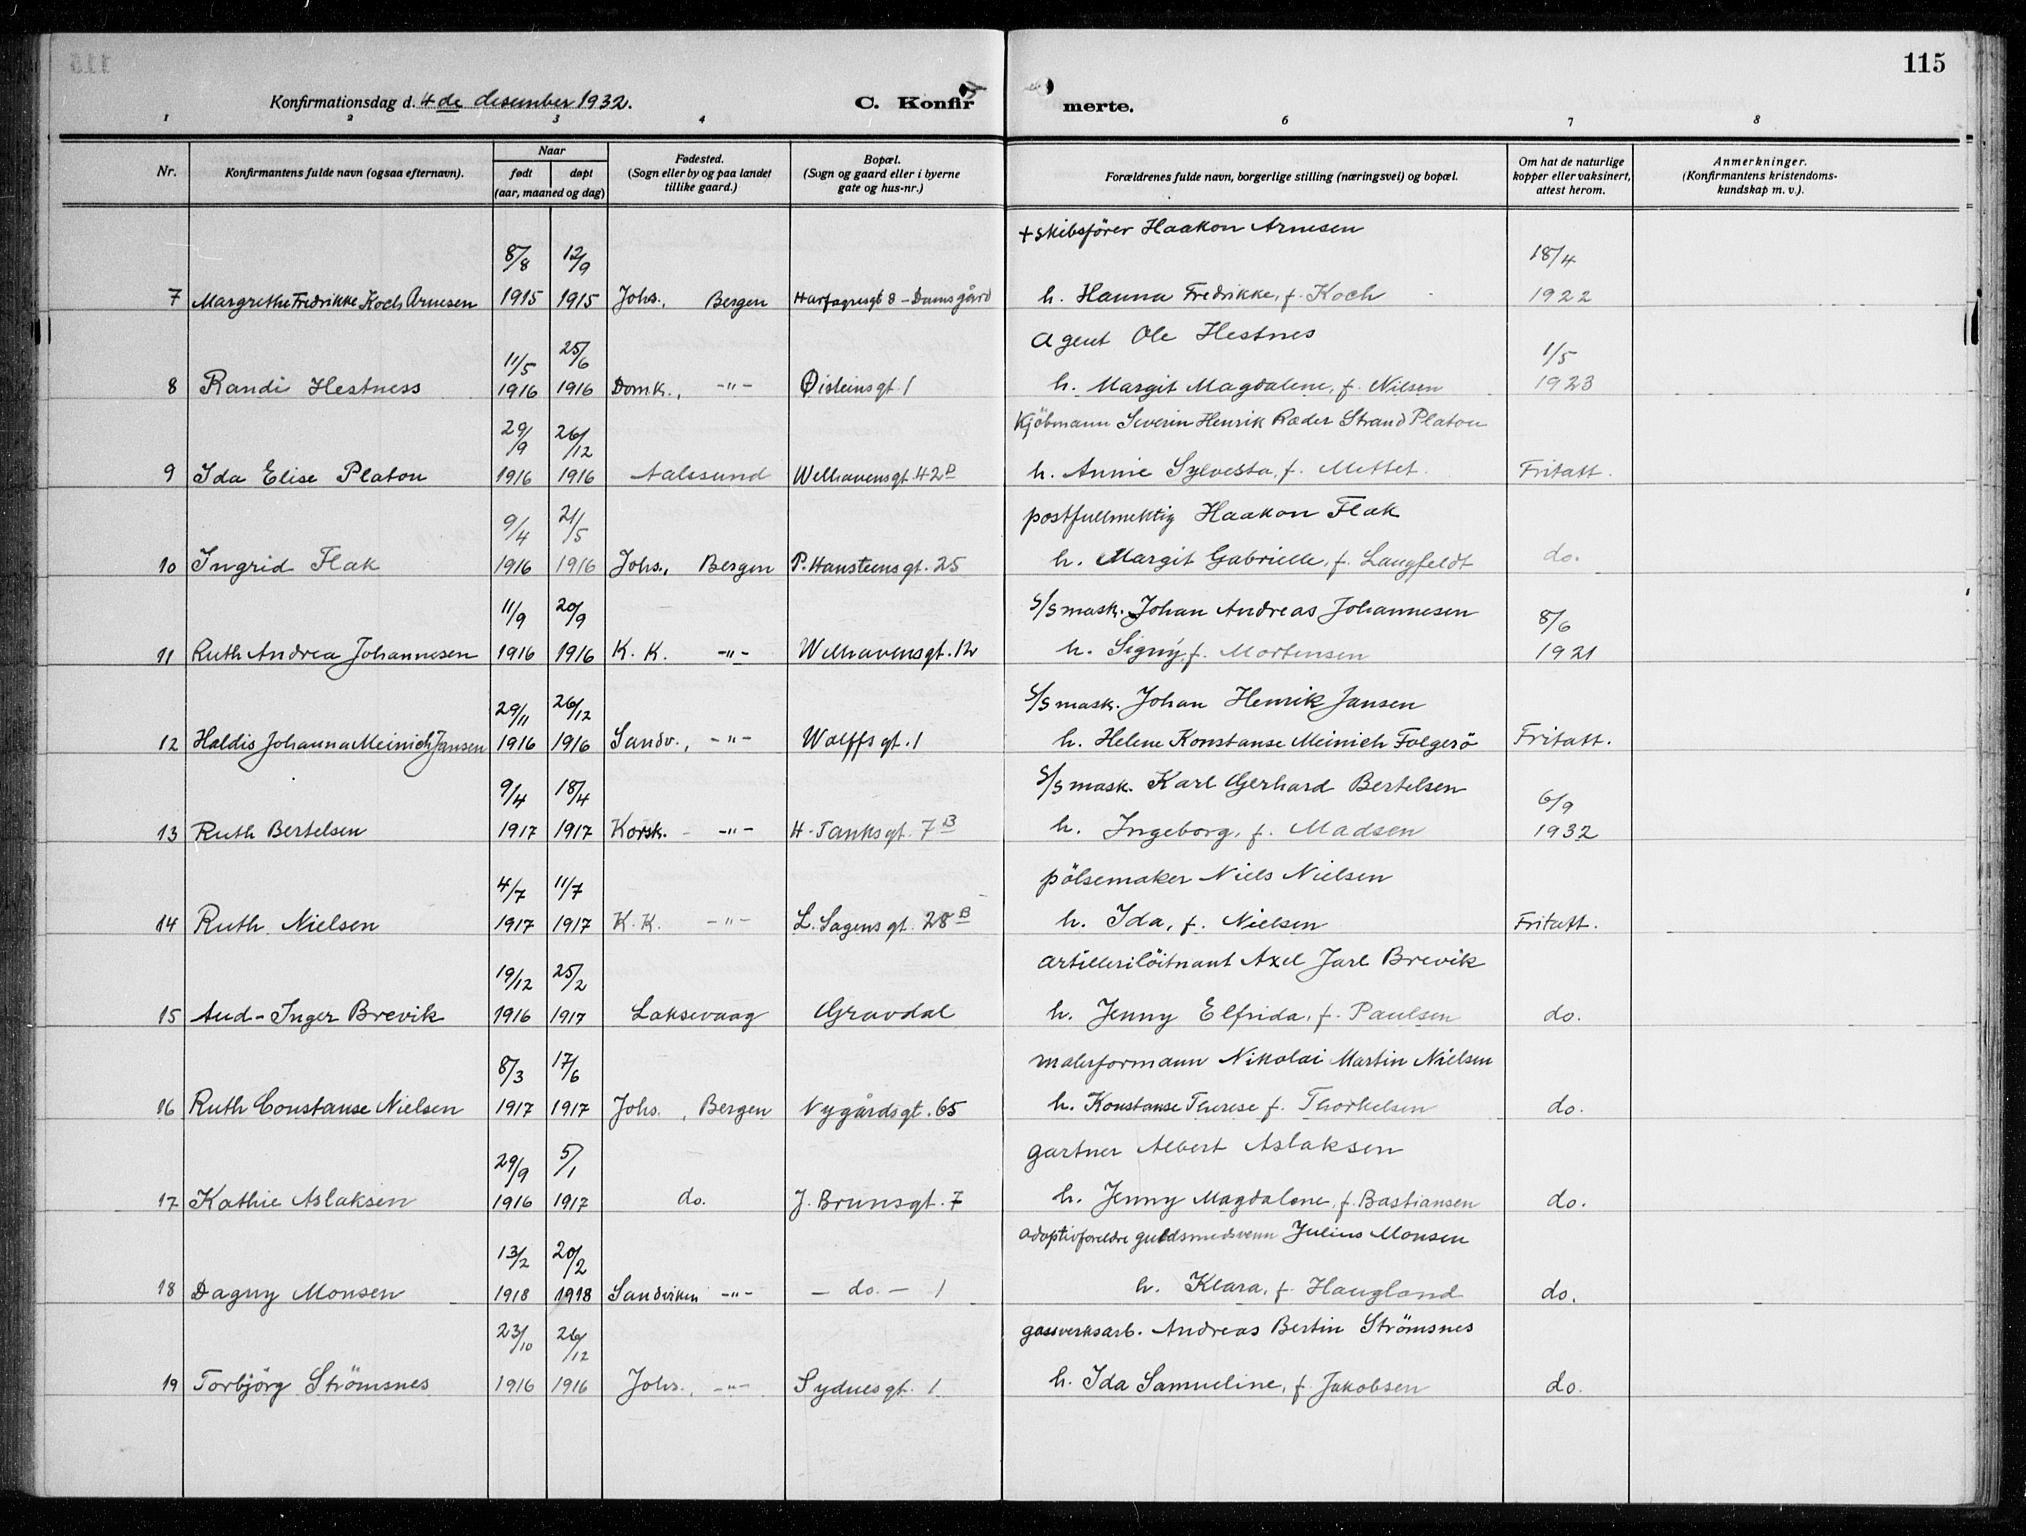 115
Konfirmationsdag d. 4de desember 1932.
C. Konfirmerte.
1 2 3 4 6 7 8
Nr.
Konfirmantens fulde navn (ogsaa efternavn).
Naar
født døpt
(aar, maaned og dag)
Fødested.
(Sogn eller by og paa landet
tillike gaard.)
Bopæl.
(Sogn og gaard eller i byerne
gate og hus-nr.)
Forældrenes fulde navn, borgerlige stilling (næringsvei) og bopæl.
Om hat de naturlige
kopper eller vaksinert,
attest herom.
Anmerkninger.
(Konfirmantens kristendoms-
kundskap m. v.).
8/8 12/9 + skibsfører Haakon Arnesen 18/4
7 Margrethe Fredrikke Koch Arnesen 1915 1915 Johs., Bergen Harfagresgt 8 - Damsgård h. Hanna Fredrikke, f. Koch 1922
11/5 25/6 Agent Ole Hestnes 1/5
8 Randi Hestness 1916 1916 Domk., -"- Øisteinsgt 1 h. Margit Magdalene, f. Nilsen 1923
29/9 26/12 Kjöbmann Severin Henrik Ræder Strand Platou
9 Ida Elise Platou 1916 1916 Aalesund Welhavensgt. 42D h. Annie Sylvesta, f. Mettet. Fritatt.
9/4 21/5 postfullmektig Haakon Flak
10 Ingrid Flak 1916 1916 Johs., Bergen P. Hansteensgt. 25 h. Margit Gabrielle, f. Langfeldt do.
11/9 20/9 S/S mask. Johan Andreas Johannesen 8/6
11 Ruth Andrea Johannesen 1916 1916 K. K. -"- Welhavensgt. 12 h. Signy, f. Mortensen 1921
29/11 26/12 S/S mask. Johan Henrik Jansen
12 Haldis Johanna Meinich Jansen 1916 1916 Sandv., -"- Wolffsgt. 1 h. Helene Konstanse Meinich Folgerö Fritatt.
9/4 18/4 S/S mask. Karl Gerhard Bertelsen 6/9
13 Ruth Bertelsen 1917 1917 Korsk. -"- H. Tanksgt. 7B h. Ingeborg, f. Madsen 1932
4/7 11/7 pölsemaker Niels Nielsen
14 Ruth Nielsen 1917 1917 K. K. -"- L. Sagensgt. 28B h. Ida, f. Nielsen Fritatt.
19/12 25/2 artilleriløitnant Axel Jarl Brevik
15 Aud-Inger Brevik 1916 1917 Laksevaag Gravdal h. Jenny Elfrida, f. Paulsen do.
8/3 17/6 malerformann Nikolai Martin Nielsen
16 Ruth Constanse Nielsen 1917 1917 Johs., Bergen Nygårdsgt. 65 h. Konstanse Therese f. Thorkelsen do.
29/9 5/1 gartner Albert Aslaksen
17 Kathie Aslaksen 1916 1917 do. J. Brunsgt. 7 h. Jenny Magdalene, f. Bastiansen do.
13/2 20/2 adoptivforeldre guldsmedsvenn Julius Monsen
18 Dagny Monsen 1918 1918 Sandviken -"- - do. - 1 h. Klara, f. Haugland do.
23/10 26/12 gassverksarb. Andreas Bertin Strömsnes
19 Torbjörg Strömsnes 1916 1916 Johs., -"- Sydnesgt. 1 h. Ida Samueline, f. Jakobsen do.